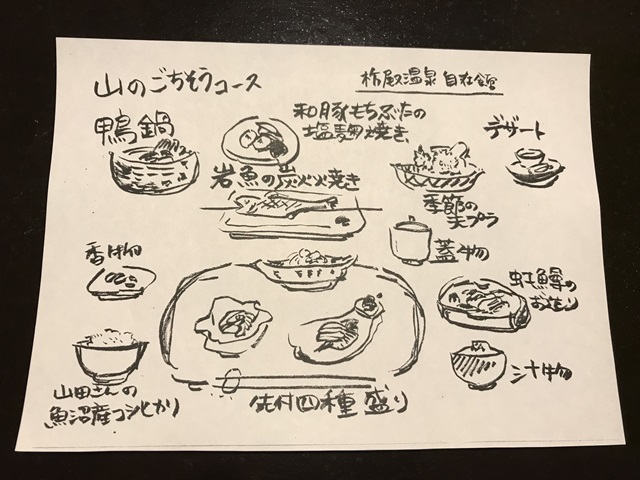 山のごちそうコース
栃尾又温泉 自在館
鴨鍋
和豚もちぶたの
塩麹焼き
デザート
岩魚の炭火焼き
季節の
天プラ
蓋物
香物
虹鱒の
お造り
山田さんの
魚沼産コシヒカリ
先付四種盛り
汁物